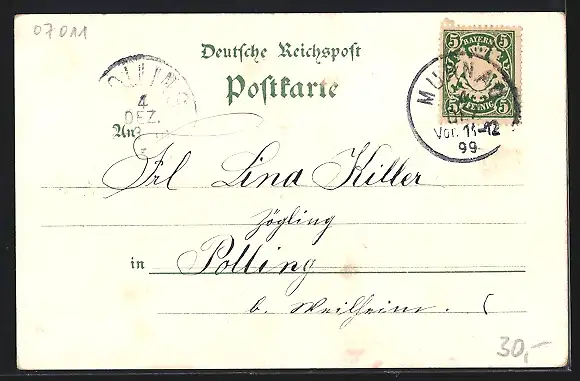 07011
Deutsche Reichspost
Postkarte
POLLING
4
DEZ.
An
5 BAYERN 5
5 PFENNIG 5
MURNAU
DEZ
Vor. 11-12
99
Frl Lina Killer
Zögling
in Polling
b. Weilheim.
30,-